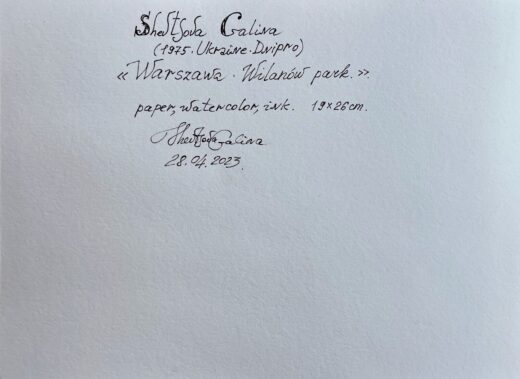 Shevtsova Galina
(1975. Ukraine. Dnipro)
«Warszawa. Wilanów park.».
paper, watercolor, ink. 19×26cm.
Shevtsova Galina
28.04.2023.